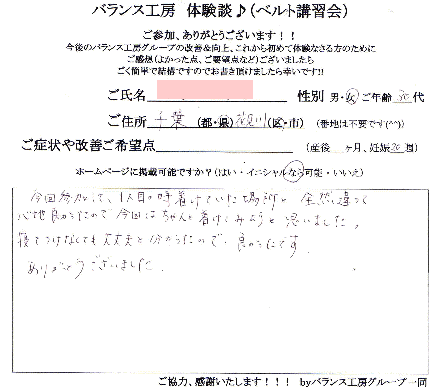 バランス工房 体験談♪(ベルト講習会)
ご参加、ありがとうございます!!
今後のバランス工房グループの改善&向上、これから初めて体験なさる方のために
ご感想(よかった点、ご要望点など)ございましたら
ごく簡単で結構ですのでお書き頂けましたら幸いです!!
ご氏名 性別 男・女 ご年齢 30代
ご住所 千葉(都・県) (区・市) (番地は不要です(^^))
ご症状や改善ご希望点 (産後 ヶ月、妊娠 週)
ホームページに掲載可能ですか?(はい・イニシャルなら可能・いいえ)
今回参加して、1人目の時着けていた場所と全然違って
心地良かったので今回はちゃんと着けてみようと思いました。
寝てつけなくても大丈夫と分かったので、良かったです。
ありがとうございました。
ご協力、感謝いたします!!! byバランス工房グループ一同